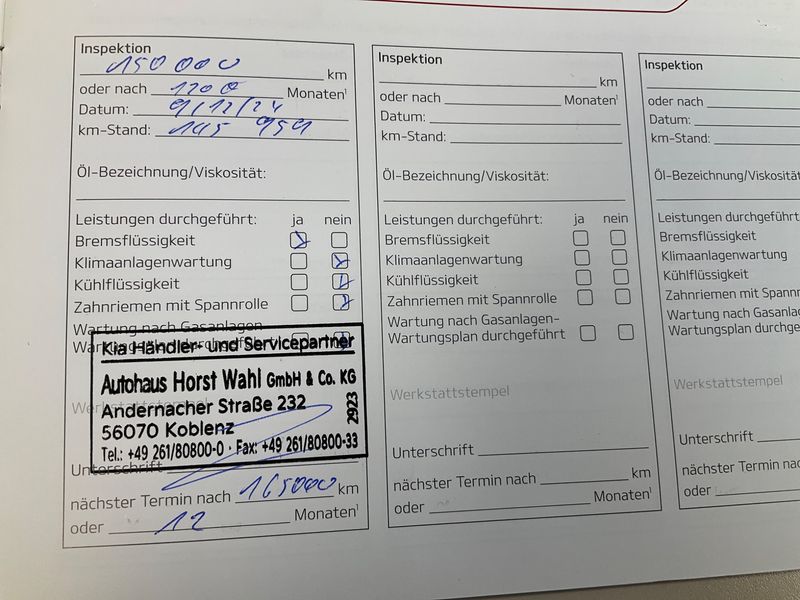 Inspektion
150 000 km
oder nach 120 0 Monaten¹
Datum: 9/12/24
km-Stand: 145 959
Öl-Bezeichnung/Viskosität:
Leistungen durchgeführt: ja nein
Bremsflüssigkeit
Klimaanlagenwartung
Kühlflüssigkeit
Zahnriemen mit Spannrolle
Wartung nach Gasanlagen
Kia Händler- und Servicepartner
Autohaus Horst Wahl GmbH & Co. KG
Andernacher Straße 232
56070 Koblenz
Tel.: +49 261/80800-0 · Fax: +49 261/80800-33
2923
Unterschrift
nächster Termin nach 165000 km
oder 12 Monaten¹
Inspektion
km
oder nach Monaten¹
Datum:
km-Stand:
Öl-Bezeichnung/Viskosität:
Leistungen durchgeführt: ja nein
Bremsflüssigkeit
Klimaanlagenwartung
Kühlflüssigkeit
Zahnriemen mit Spannrolle
Wartung nach Gasanlagen-
Wartungsplan durchgeführt
Werkstattstempel
Unterschrift
nächster Termin nach km
oder Monaten¹
Inspektion
oder nach
Datum:
km-Stand:
Öl-Bezeichnung/Viskosität
Leistungen durchgeführt
Bremsflüssigkeit
Klimaanlagenwartung
Kühlflüssigkeit
Zahnriemen mit Spann
Wartung nach Gasanla
Wartungsplan durchge
Werkstattstempel
Unterschrift
nächster Termin nach
oder